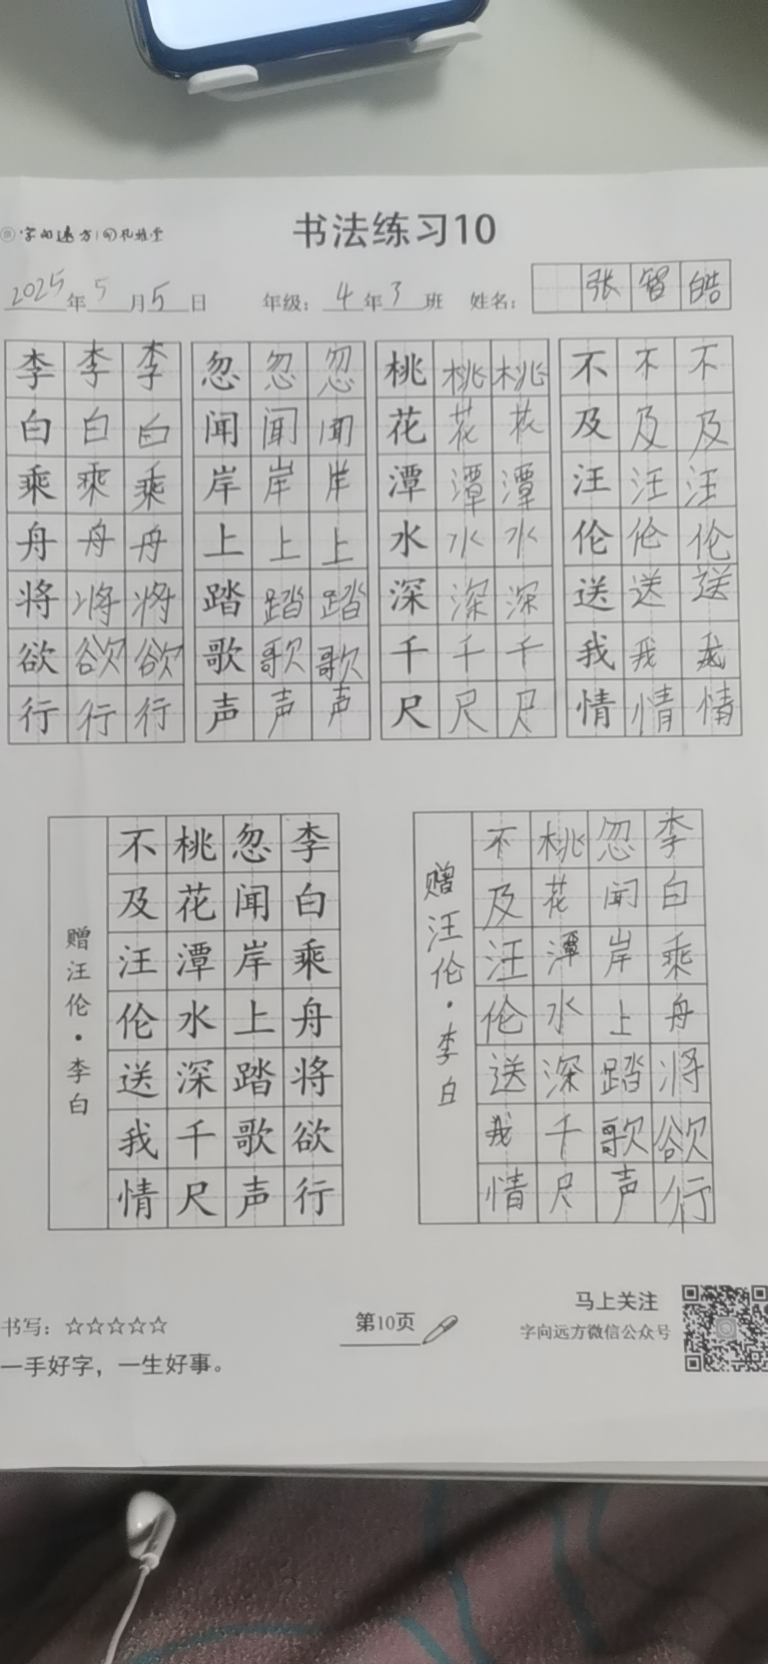 字向远方
书法练习10
2025年5月5日 年级：4年3班 姓名：张智皓
李李李 忽忽忽 桃桃桃 不不不
白白白 闻闻闻 花花花 及及及
乘乘乘 岸岸岸 潭潭潭 汪汪汪
舟舟舟 上上上 水水水 伦伦伦
将将将 踏踏踏 深深深 送送送
欲欲欲 歌歌歌 千千千 我我我
行行行 声声声 尺尺尺 情情情
李白乘舟将欲行
忽闻岸上踏歌声
桃花潭水深千尺
不及汪伦送我情
赠汪伦·李白
李白乘舟将欲行
忽闻岸上踏歌声
桃花潭水深千尺
不及汪伦送我情
赠汪伦·李白
书写：☆☆☆☆☆
一手好字，一生好事。
第10页
马上关注
字向远方微信公众号